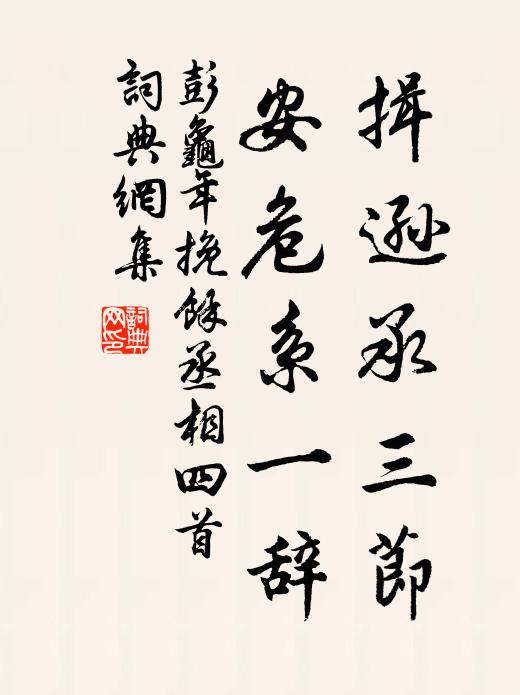 揖遜承三節
安危系一辞
彭龜年挽餘丞相四首
詞典網集
詞典网印